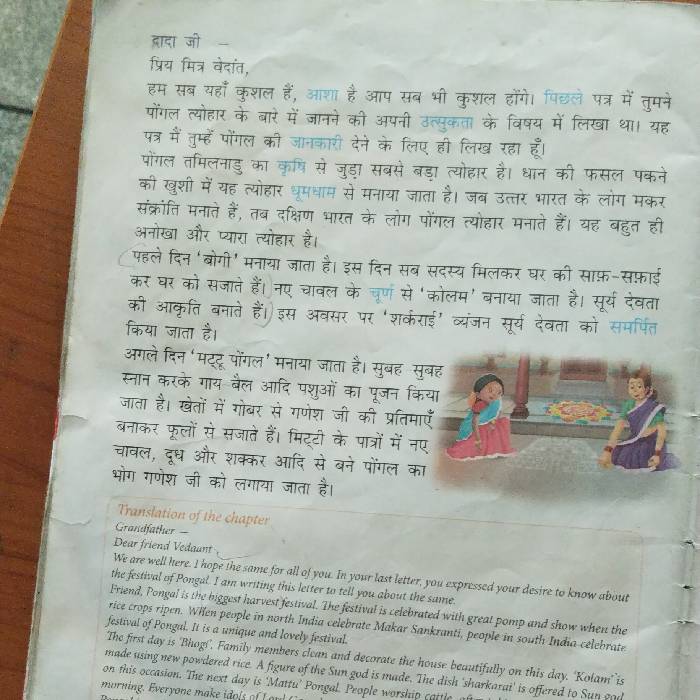 दादा जी –
प्रिय मित्र वेदांत,
हम सब यहाँ कुशल हैं, आशा है आप सब भी कुशल होंगे। पिछले पत्र में तुमने
पोंगल त्योहार के बारे में जानने की अपनी उत्सुकता के विषय में लिखा था। यह
पत्र मैं तुम्हें पोंगल की जानकारी देने के लिए ही लिख रहा हूँ।
पोंगल तमिलनाडु का कृषि से जुड़ा सबसे बड़ा त्योहार है। धान की फसल पकने
की खुशी में यह त्योहार धूमधाम से मनाया जाता है। जब उत्तर भारत के लोग मकर
संक्रांति मनाते हैं, तब दक्षिण भारत के लोग पोंगल त्योहार मनाते हैं। यह बहुत ही
अनोखा और प्यारा त्योहार है।
पहले दिन ‘बोगी’ मनाया जाता है। इस दिन सब सदस्य मिलकर घर की साफ़-सफ़ाई
कर घर को सजाते हैं। नए चावल के चूर्ण से ‘कोलम’ बनाया जाता है। सूर्य देवता
की आकृति बनाते हैं। इस अवसर पर ‘शर्कराई’ व्यंजन सूर्य देवता को समर्पित
किया जाता है।
अगले दिन ‘मट्टू पोंगल’ मनाया जाता है। सुबह-सुबह
स्नान करके गाय-बैल आदि पशुओं का पूजन किया
जाता है। खेतों में गोबर से गणेश जी की प्रतिमाएँ
बनाकर फूलों से सजाते हैं। मिट्टी के पात्रों में नए
चावल, दूध और शक्कर आदि से बने पोंगल का
भोग गणेश जी को लगाया जाता है।
Translation of the chapter
Grandfather —
Dear friend Vedaant,
We are well here. I hope the same for all of you. In your last letter, you expressed your desire to know about
the festival of Pongal. I am writing this letter to tell you about the same.
Friend, Pongal is the biggest harvest festival. The festival is celebrated with great pomp and show when the
rice crops ripen. When people in north India celebrate Makar Sankranti, people in south India celebrate
festival of Pongal. It is a unique and lovely festival.
The first day is ‘Bhogi’. Family members clean and decorate the house beautifully on this day. ‘Kolam’ is
made using new powdered rice. A figure of the Sun god is made. The dish ‘sharkarai’ is offered to Sun god
on this occasion. The next day is ‘Mattu’ Pongal. People worship cattle
morning. Everyone make idols of Lord